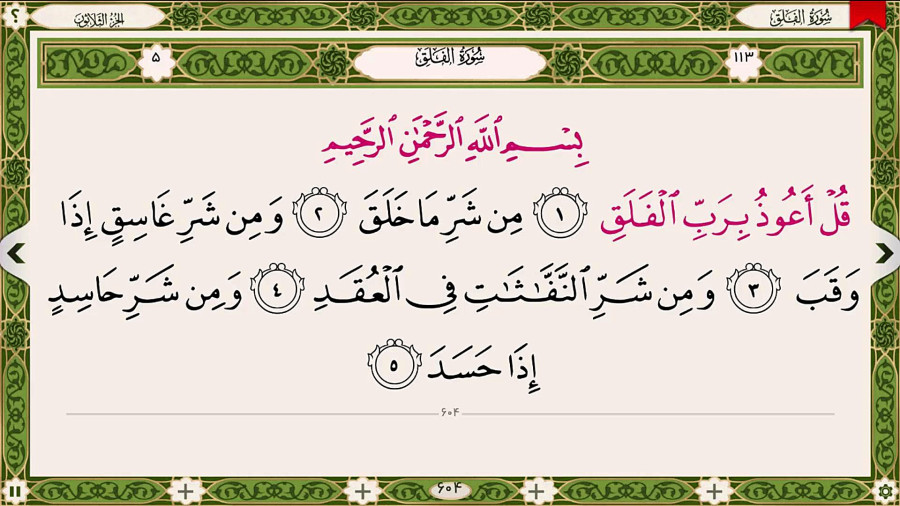 سُورَةُ الفَلَقِ
الجُزءُ الثَّلَاثُونَ
؟
١١٣
سُورَةُ الفَلَقِ
٥
بِسْمِ ٱللَّهِ ٱلرَّحْمَٰنِ ٱلرَّحِيمِ
قُلْ أَعُوذُ بِرَبِّ ٱلْفَلَقِ ١ مِن شَرِّ مَا خَلَقَ ٢ وَمِن شَرِّ غَاسِقٍ إِذَا
وَقَبَ ٣ وَمِن شَرِّ ٱلنَّفَّٰثَٰتِ فِى ٱلْعُقَدِ ٤ وَمِن شَرِّ حَاسِدٍ
إِذَا حَسَدَ ٥
۶۰۴
۶۰۴